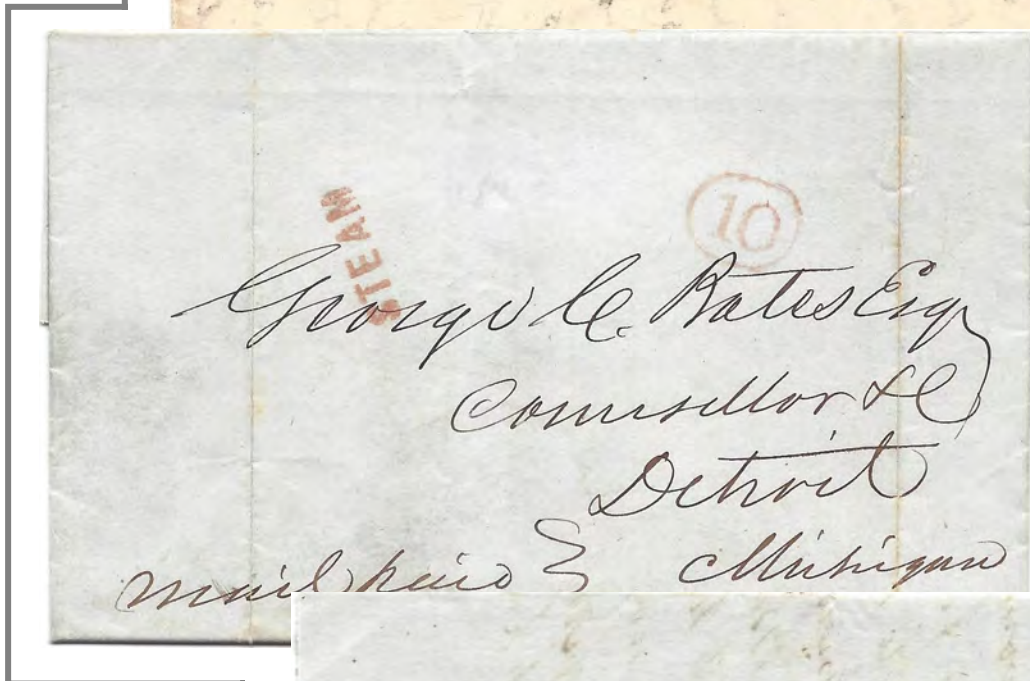 STEAM
10
George C. Bates Esq
Counsellor &c
Detroit
Michigan
mail paid